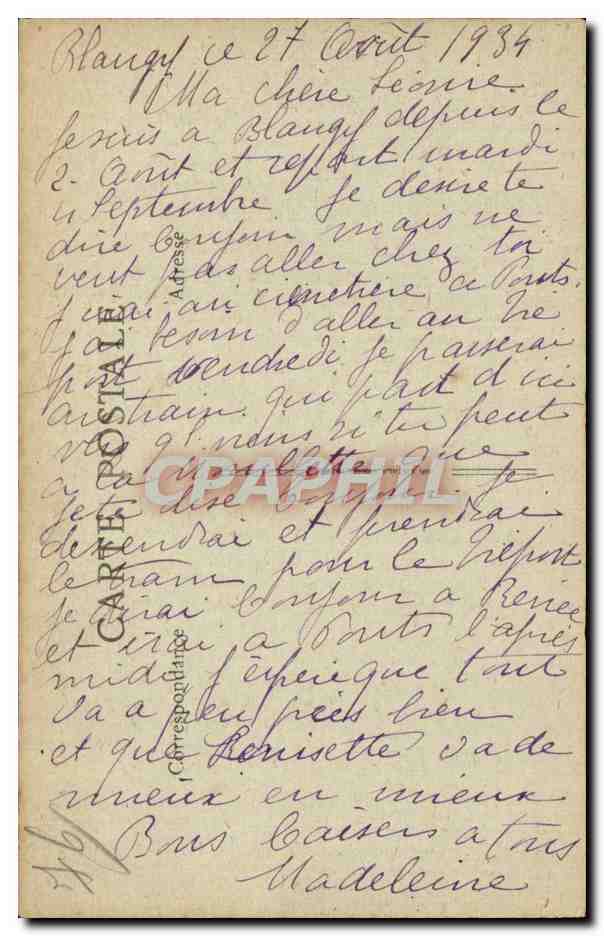 Blangy ce 27 Août 1934
Ma chère Léonie
Je suis a Blangy depuis le
2. Août et repart mardi
4 Septembre je desire te
dire bonjour mais ne
veut pas aller chez toi
j'irai au cimetière a Ponts.
j'ai besoin d'aller au Tré
port vendredi je passerai
au train qui part d'ici
vers 9h
si tu peut
a la que
je te dise bonjour je
descendrai et prendrai
le tram pour le Tréport
je dirai bonjour a Renée
et irai a Ponts l'après
midi j'éspère que tout
va a peu près bien
et que Louisette va de
mieux en mieux
Bons baisers a tous
Madeleine
CARTE POSTALE
Adresse
Correspondance
CPAPHIL